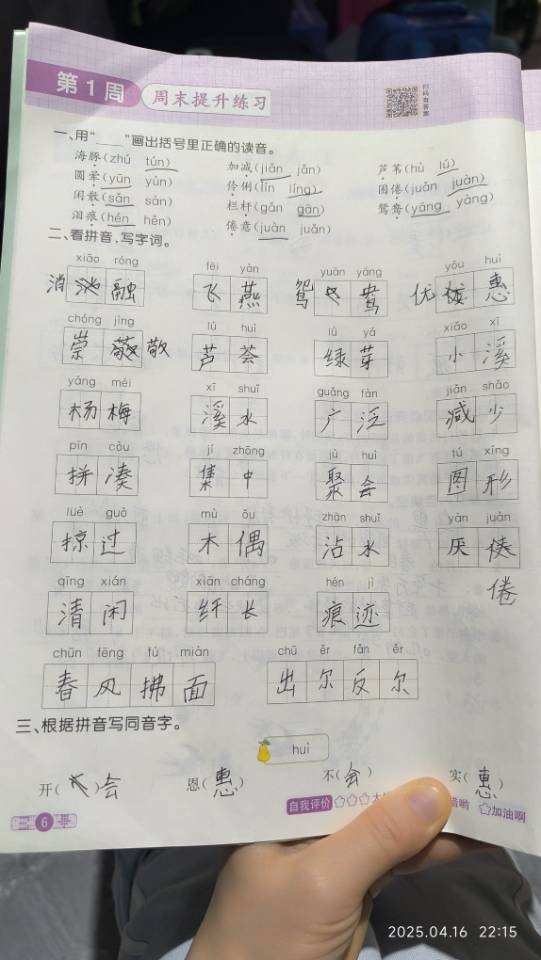 第1周 周末提升练习
扫码查答案
一、用“____”画出括号里正确的读音。
海豚(zhú tún) 加减(jiǎn jǎn) 芦苇(hù lú)
圆晕(yūn yùn) 伶俐(lín líng) 困倦(juǎn juàn)
闲散(sǎn sàn) 栏杆(gǎn gān) 鸳鸯(yāng yàng)
泪痕(hén hēn) 倦意(juàn juǎn)
二、看拼音,写字词。
xiāo róng fēi yàn yuān yāng yōu huì
消 融 飞 燕 鸳 鸯 优 惠
chóng jìng lú huì lǜ yá xiǎo xī
崇 敬 芦荟 绿芽 小溪
yáng méi xī shuǐ guǎng fàn jiǎn shǎo
杨梅 溪水 广泛 减少
pīn còu jí zhōng jù huì tú xíng
拼凑 集中 聚会 图形
lüè guò mù ǒu zhān shuǐ yàn juàn
掠过 木偶 沾水 厌 倦
qīng xián xiān cháng hén jì
清闲 纤长 痕迹
chūn fēng fú miàn chū ěr fǎn ěr
春风拂面 出尔反尔
三、根据拼音写同音字。
huì
开( )会 恩(惠) 不(会) 实(惠)
6 自我评价 加油啊
2025.04.16 22:15